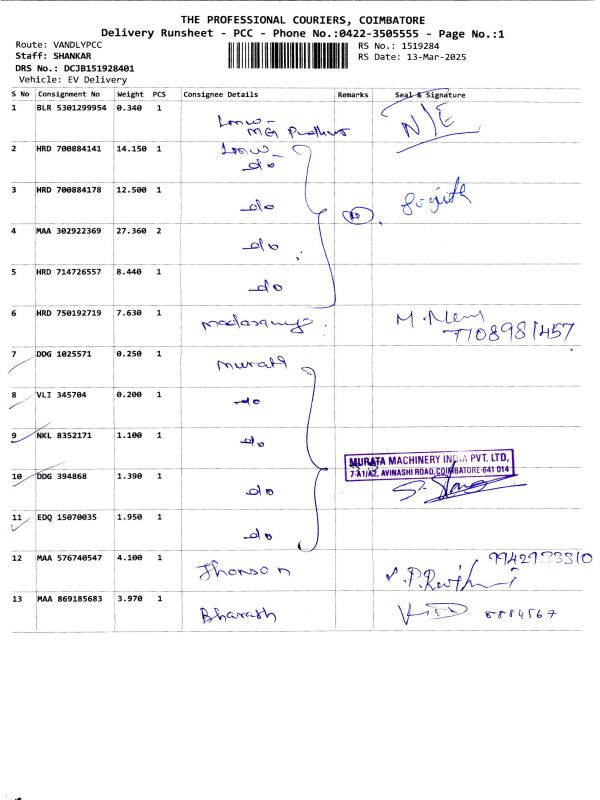 THE PROFESSIONAL COURIERS, COIMBATORE
Delivery Runsheet - PCC - Phone No.:0422-3505555 - Page No.:1
Route: VANDLYPCC
RS No.: 1519284
Staff: SHANKAR
RS Date: 13-Mar-2025
DRS No.: DCJB151928401
Vehicle: EV Delivery
S No Consignment No Weight PCS Consignee Details Remarks Seal & Signature
1 BLR 5301299954 0.340 1 N/E
2 HRD 700884141 14.150 1
do
3 HRD 700884178 12.500 1 do
4 MAA 302922369 27.360 2 do
5 HRD 714726557 8.440 1 do
6 HRD 750192719 7.630 1 M.
7708981457
7 DDG 1025571 0.250 1 murata
8 VLI 345704 0.200 1 do
9 NKL 8352171 1.100 1 do
MURATA MACHINERY INDIA PVT. LTD,
7-A1/A2, AVINASHI ROAD, COIMBATORE-641 014
10 DDG 394868 1.390 1 do
11 EDQ 15070035 1.950 1 do
12 MAA 576740547 4.100 1 Jhonson
13 MAA 869185683 3.970 1 Bharath 8884567